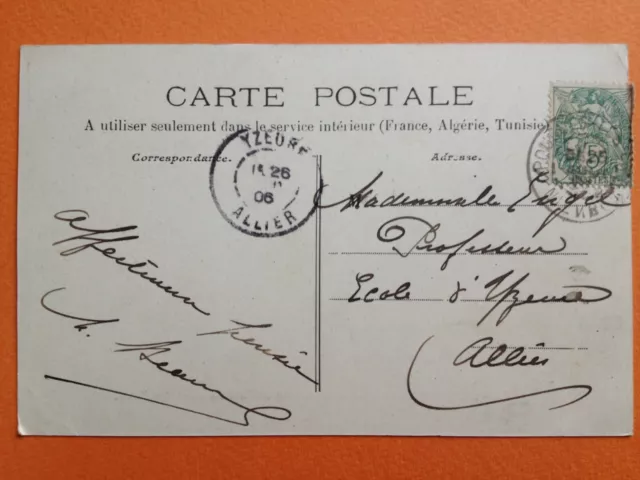 CARTE POSTALE
A utiliser seulement dans le service intérieur (France, Algérie, Tunisie)
Correspondance.
Adresse.
YZEURE
26
06
ALLIER
Mademoiselle Engel
Professeur
Ecole d'Yzeure
Allier
Affectueuse pensée